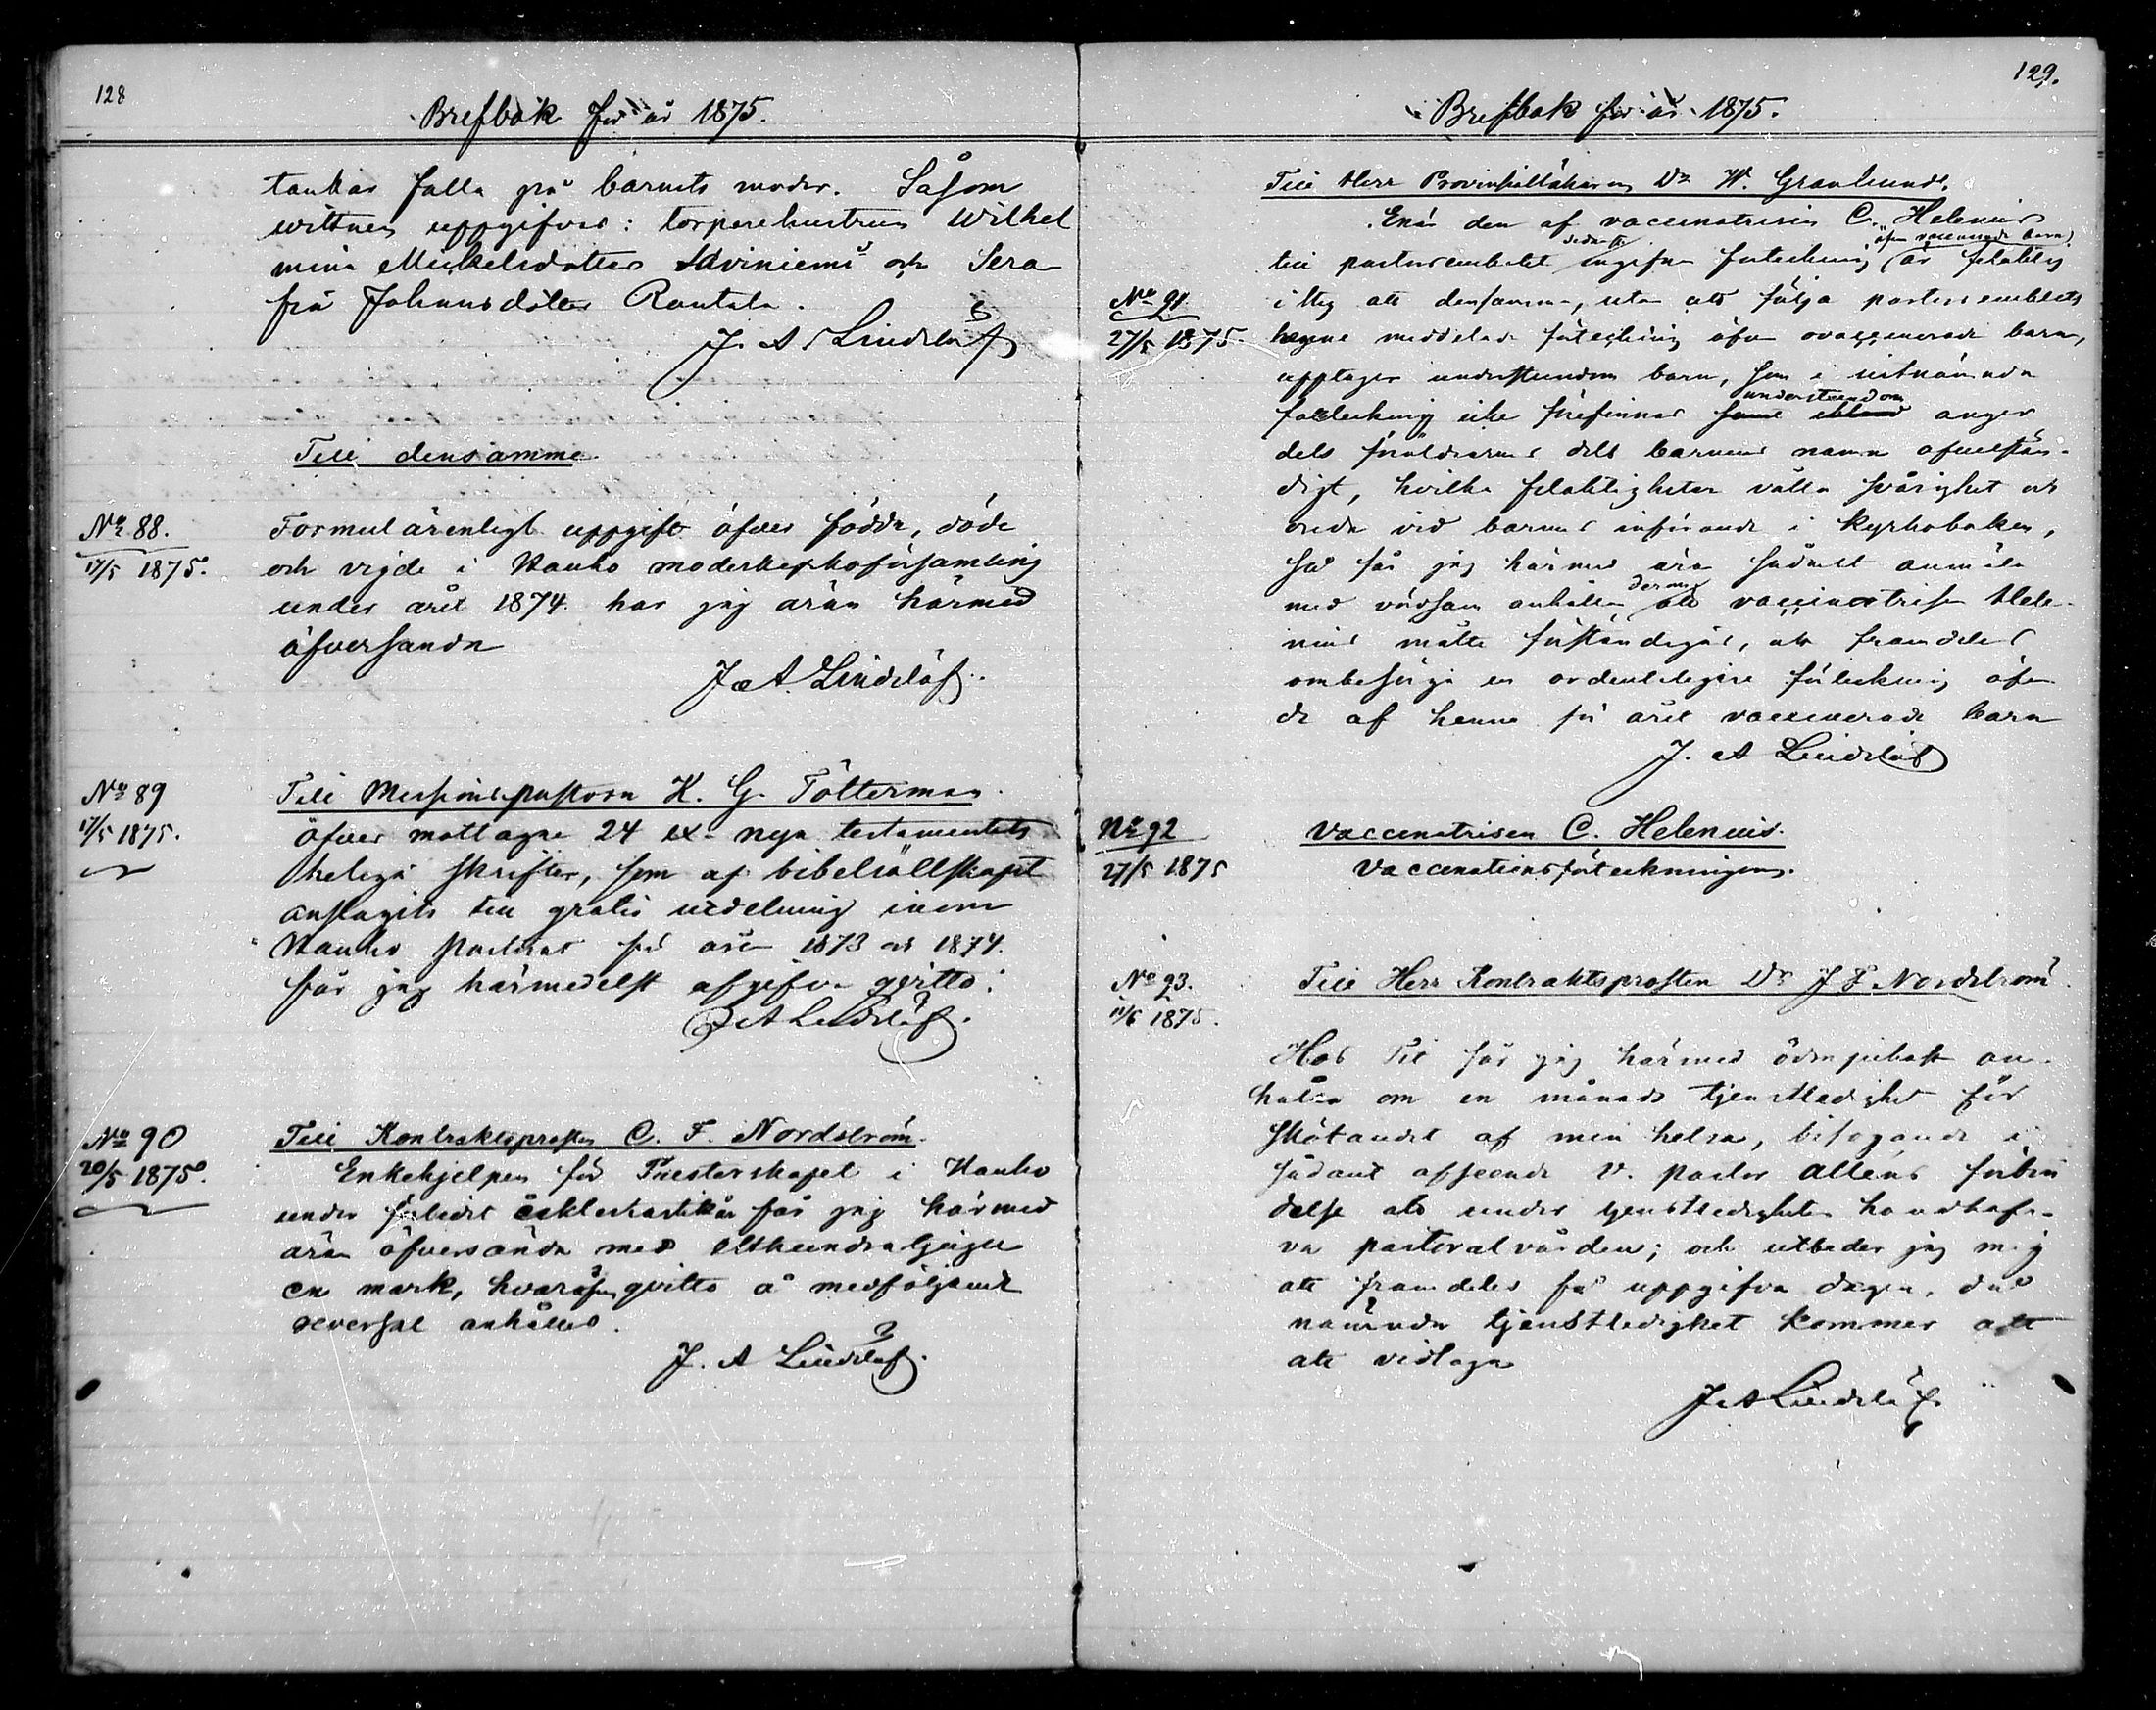 128
Brefbok för år 1875.
tankar falla på barnets moder. Såsom
wittnen uppgifvas: torparehustrun Wilhel
mina Mickelsdotter Adviniemi och Sera
fia Johansdotter Rantala.
J. A Lindelöf
Till densamme.
No 88.
17/5 1875.
Formulärenligt uppgift öfver födde, döde
och vigde i Kauho moderkyrkoförsamling
under året 1874 har jag äran härmed
öfversända
J. A. Lindelöf.
No 89
17/5 1875.
Till Missionspastorn K. G. Tötterman.
öfver mottagne 24 ex. nya testamentets
heliga skrifter, som af bibelsällskapet
anslagits till gratis utdelning inom
Kauho Pastorat för åren 1873 och 1874.
får jag härmedelst afgifva qvitto.
J A Lindelöf.
No 90
20/5 1875.
Till Kontraktsprosten C. F. Nordström.
Enkehjelpen för Presterskapet i Kauho
under förlidet ecklesiastikår får jag härmed
äran öfversända med etthundratjugu
en mark, hvaröfver qvitto å medföljande
reversal anhålles.
J. A Lindelöf.
129.
Brefbok för år 1875.
Till Herr Provinsialläkaren Dr W. Granlund.
Enär den af vaccinatrisen C. Helenius
sednast öfver vaccinerade barn
till pastorsembetet ingifna förteckning är felaktig
No 91
27/5 1875.
i ty att densamma, utan att följa pastorsembetets
henne meddelade förteckning öfver ovaccinerade barn,
upptager understundom barn, som i sistnämnda
understundom
förteckning icke förefinnas samt anger
dels föräldrarnes dels barnens namn ofullstän-
digt, hvilka felaktigheter vålla svårighet och
oreda vid barnens införande i kyrkoboken,
så får jag härmed äran sådant anmäla
med vördsam anhållan att vaccinatrisen Hele-
nius måtte förständigas, att framdeles
ombesörja en ordentligare förteckning öfver
de af henne för året vaccinerade barn
J. A Lindelöf
No 92
27/5 1875
Vaccinatrisen C. Helenius.
Vaccinationsförteckningen.
No 93.
11/6 1875.
Till Herr Kontraktsprosten Dr J F. Nordström.
Hos Tit får jag härmed ödmjukast an-
hålla om en månads tjenstledighet för
skötandet af min helsa, bifogande i
sådant afseende V. pastor Alléns förbin
delse att under tjenstledigheten handhaf-
va pastoralvården; och utbeder jag mig
att framdeles få uppgifva dagen, då
nämnde tjenstledighet kommer att
att vidtaga
J A Lindelöf